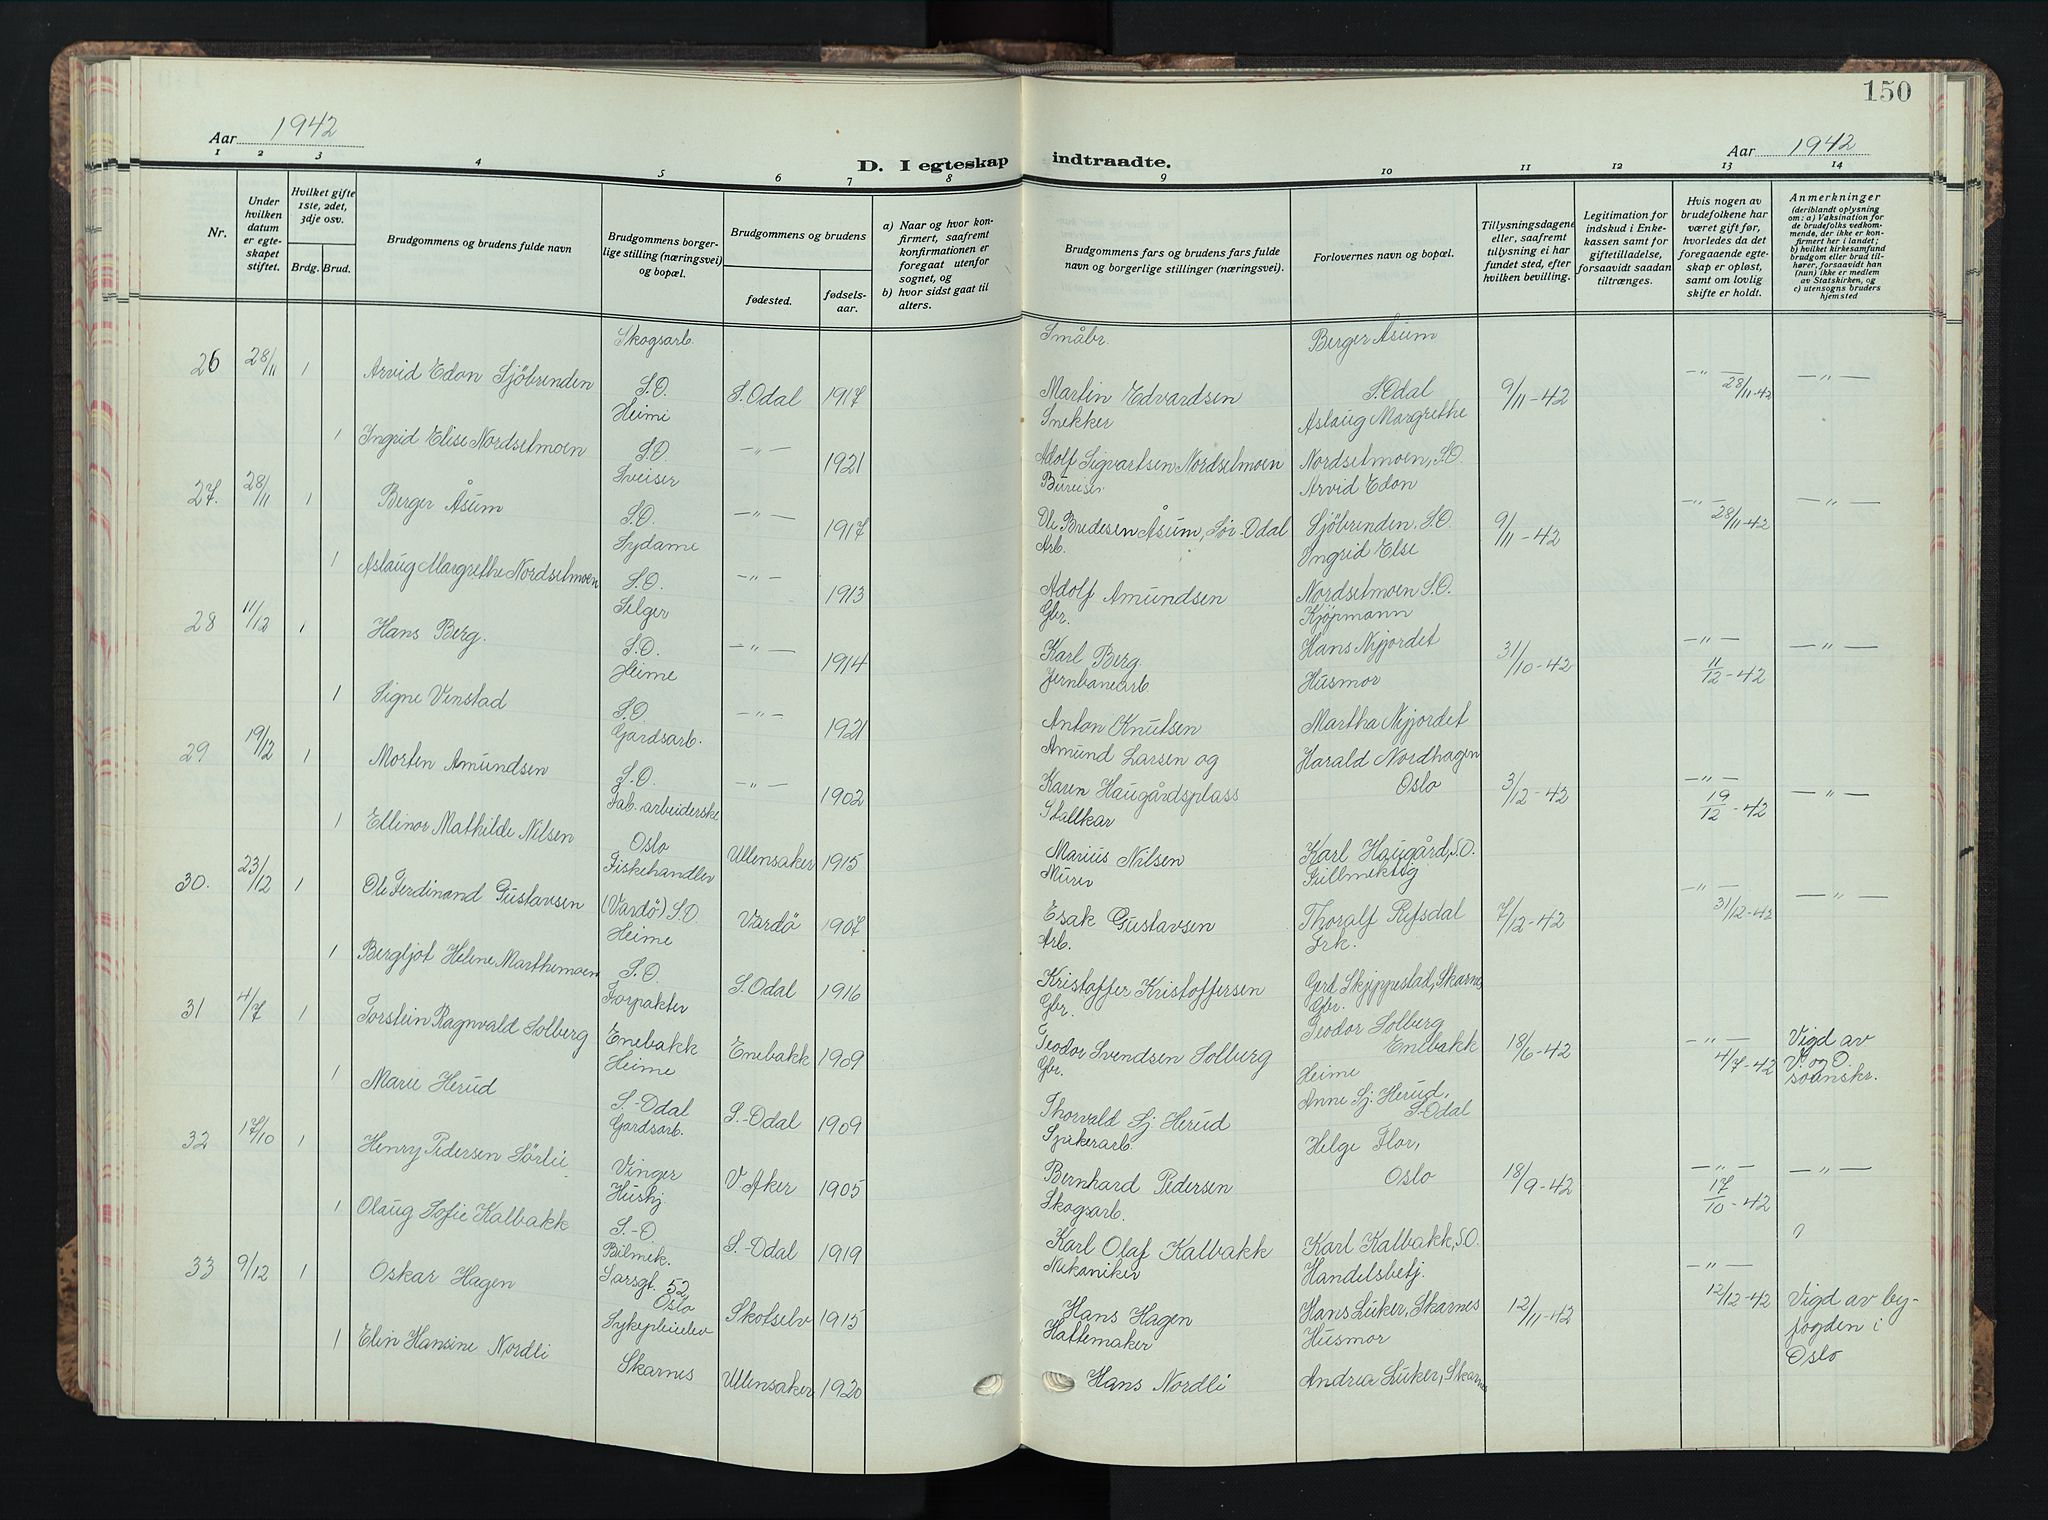 150
Aar 1942
D. I egteskap indtraadte.
Aar 1942
1 2 3 4 5 6 7 8 9 10 11 12 13 14
Nr.
Under hvilken datum er egteskapet stiftet.
Hvilket gifte 1ste, 2det, 3dje osv.
Brdg. Brud.
Brudgommens og brudens fulde navn
Brudgommens borgerlige stilling (næringsvei) og bopæl.
Brudgommens og brudens
fødested. fødselsaar.
a) Naar og hvor konfirmert, saafremt konfirmationen er foregaat utenfor sognet, og
b) hvor sidst gaat til alters.
Brudgommens fars og brudens fars fulde navn og borgerlige stillinger (næringsvei).
Forlovernes navn og bopæl.
Tillysningsdagene eller, saafremt tillysning ei har fundet sted, efter hvilken bevilling.
Legitimation for indskud i Enkekassen samt for giftetilladelse, forsaavidt saadan tiltrænges.
Hvis nogen av brudefolkene har været gift før, hvorledes da det foregaaende egteskap er opløst, samt om lovlig skifte er holdt.
Anmerkninger
(deriblandt oplysning om: a) Vaksination for de brudefolks vedkommende, der ikke er konfirmert her i landet; b) hvilket kirkesamfund brudgom eller brud tilhører, forsaavidt han (hun) ikke er medlem av Statskirken, og c) utensogns bruders hjemsted
26 28/11 1 Arvid Edon Sjöbrenden Skogsarb. S.O. S.Odal 1917 Småbr. Martin Edvardsen Berger Åsum S.Odal 9/11-42 — " — 28/11-42 — " —
1 Ingrid Elise Nordselmoen Heime S.O. — " — 1921 Snekker Adolf Sigvartsen Nordselmoen Aslaug Margrethe Nordselmoen, S.O.
27. 28/11 1 Berger Åsum Sveiser S.O. — " — 1917 Bureiser Ole Bredesen Åsum, Sör-Odal Arvid Edon Sjöbrenden, S.O. 9/11-42 — " — 28/11-42 — " —
1 Aslaug Margrethe Nordselmoen Sydame S.O. — " — 1913 Arb. Adolf Amundsen Ingrid Else Nordselmoen S.O.
28 11/12 1 Hans Berg. Selger S.O. — " — 1914 Gbr. Karl Berg. Kjöpmann Hans Nyjordet 31/10-42 — " — 11/12-42 — " —
1 Signe Venstad Heime S.O. — " — 1921 Jernbanearb. Anton Knutsen Husmor Martha Nyjordet
29 19/12 1 Morten Amundsen Gårdsarb. S.O. — " — 1902 Amund Larsen og Karen Haugårdsplass Harald Nordhagen Oslo 3/12-42 — " — 19/12-42 — " —
1 Ellinor Mathilde Nilsen Fab. arbeiderske Oslo Ullensaker 1915 Stallkar Marius Nilsen Karl Haugård, S.O.
30. 23/12 1 Ole Ferdinand Gustavsen Fiskehandler (Vardö) S.O. Vardö 1907 Murer Esak Gustavsen Fullmektig Thoralf Refsdal 7/12-42 — " — 31/12-42 — " —
1 Bergljot Helene Marthemoen Heime S.O. S.Odal 1916 Arb. Kristoffer Kristoffersen Frk. Gerd Skjippestad, Skarnes
31 4/7 1 Torstein Ragnvald Solberg Forpakter Enebakk Enebakk 1909 Gbr. Teodor Svendsen Solburg Gbr. Teodor Solberg Enebakk 18/6-42 — " — 4/7-42 Vigd av V. og O. soknskr.
1 Marie Herud Heime S.-Odal S.-Odal 1909 Gbr. Thorvald Sj. Herud Heime Anne Sj. Herud, S-Odal
32 17/10 1 Henry Pedersen Sörlie Gardsarb. Vinger V. Aker 1905 Spikerarb. Bernhard Pedersen Helge Flor, Oslo 18/9-42 — " — 17/10-42 — " —
1 Olaug Sofie Kalbakk Hushj. S.-O. S.-Odal 1919 Skogsarb. Karl Olaf Kalbakk Karl Kalbakk, S.O. ?
33 9/12 1 Oskar Hagen Bilmek. Sarsgt. 52, Oslo Skotselv 1915 Mekaniker Hans Hagen Handelsbetj. Hans Luker, Skarnes 12/11-42 — " — 12/12-42 Vigd av byfogden i Oslo
1 Elin Hansine Nordli Sykepleielev Skarnes Ullensaker 1920 Hattemaker Hans Nordli Husmor Andrea Luker, Skarnes